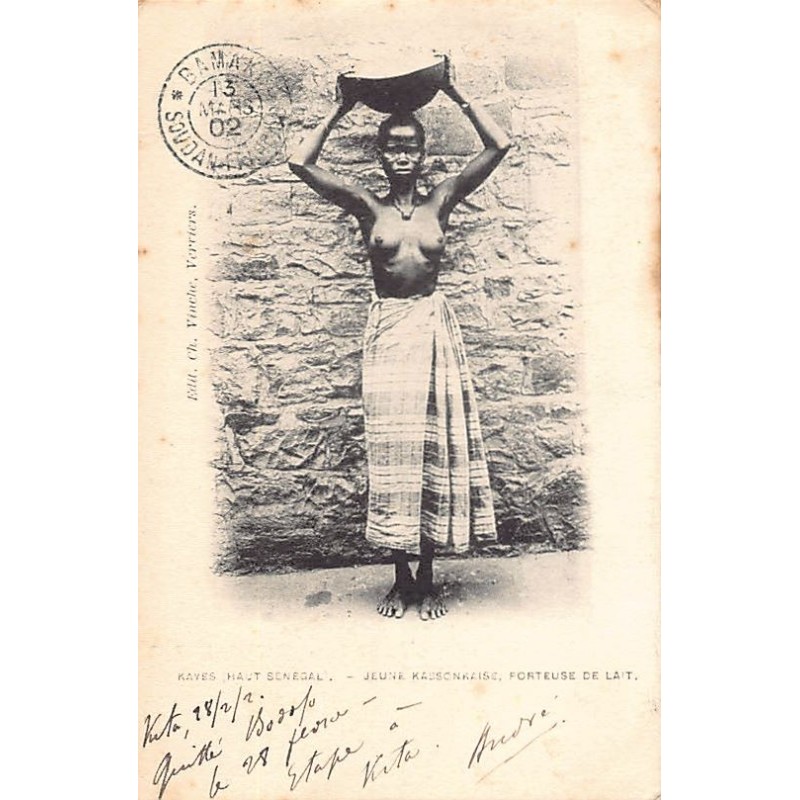 BAMAK
13
MARS
02
SOUDAN-FR
Edit. Ch. Vinche, Verviers.
KAYES (HAUT SENEGAL). - JEUNE KASSONKAISE, PORTEUSE DE LAIT.
Kita, 28/2/2.
Quitté
le 28
Etape à
Kita.
André